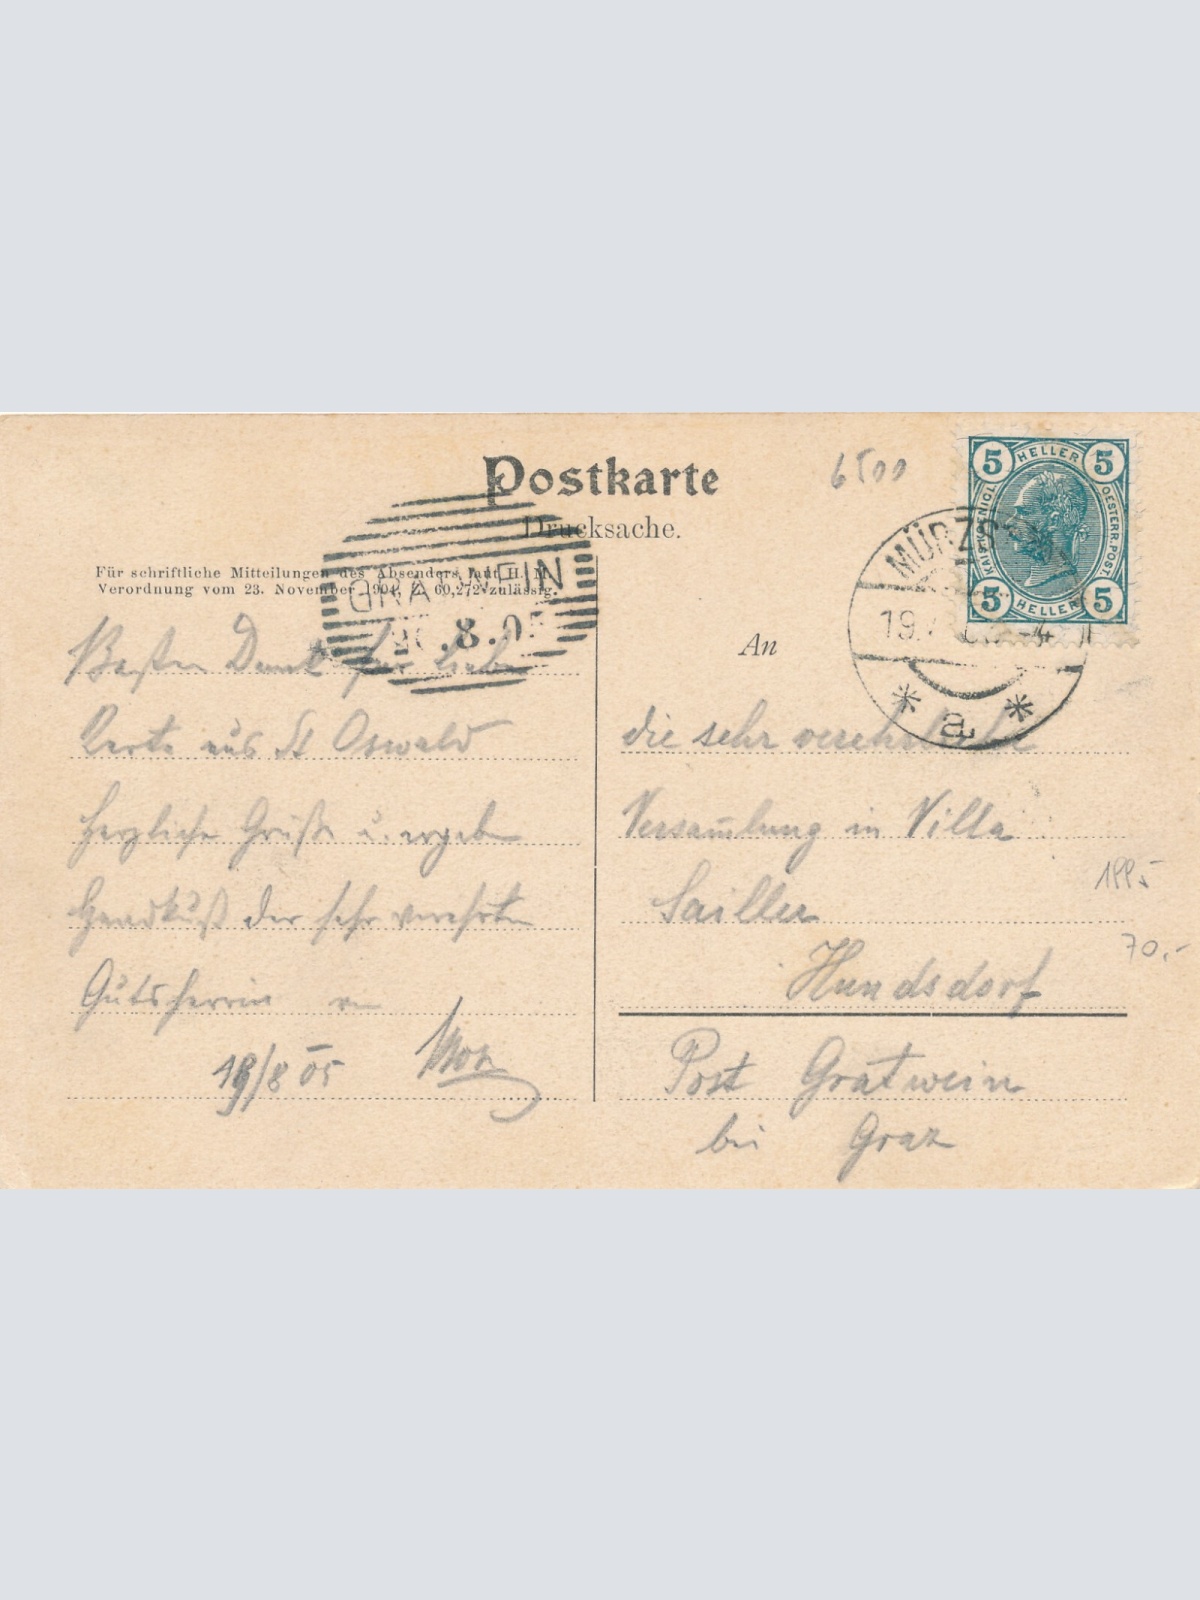 Postkarte
Drucksache.
6500
5 HELLER 5
KAIS. KOENIGL. OESTERR. POST.
5 HELLER 5
Für schriftliche Mitteilungen des Absenders laut H. M.
Verordnung vom 23. November 1904, Z. 60,272 zulässig.
GRATWEIN
20.8.05
MÜRZ
19.
a
An
Besten Dank für liebe
Karte aus St Oswald
Herzliche Grüße u. ergeb
Handkuß der sehr verehrten
Gutsherrin
19/8 05
die sehr verehrliche
Versam̅lung in Villa
Sailler
Hundsdorf
Post Gratwein
bei Graz
1995
70.-